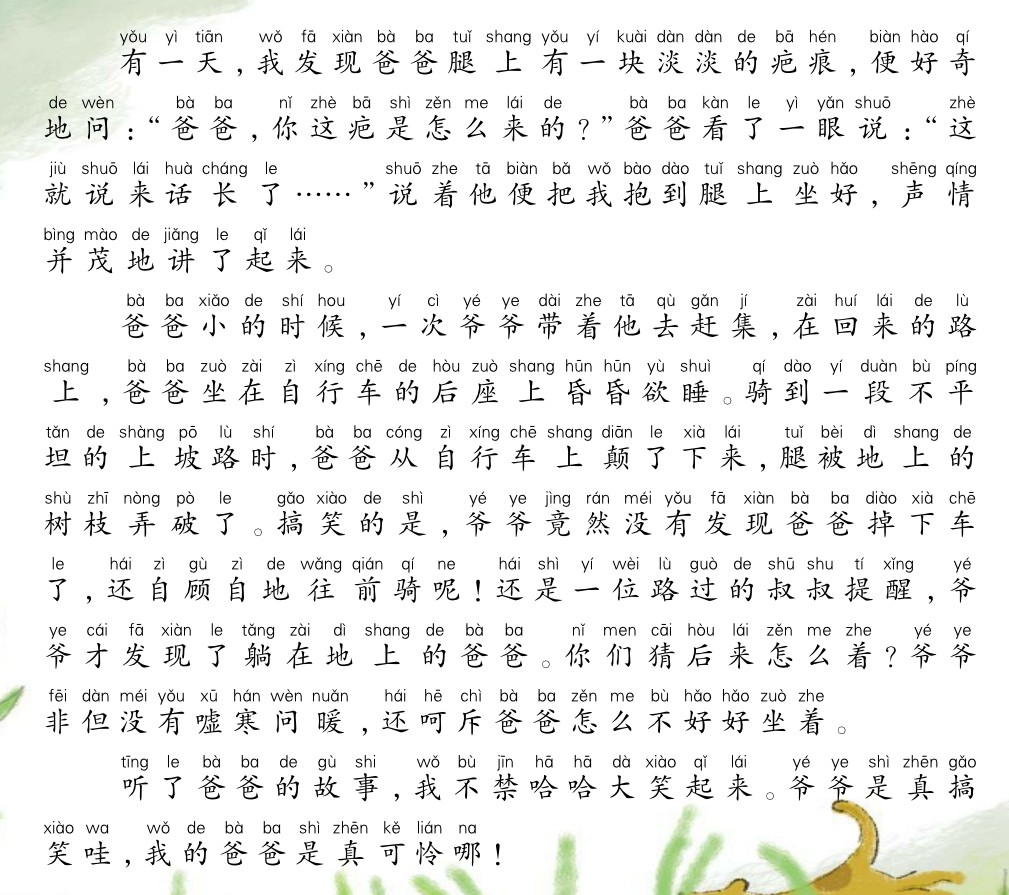 yǒu yì tiān wǒ fā xiàn bà ba tuǐ shang yǒu yí kuài dàn dàn de bā hén biàn hào qí
有一天,我发现爸爸腿上有一块淡淡的疤痕,便好奇
de wèn bà ba nǐ zhè bā shì zěn me lái de bà ba kàn le yì yǎn shuō zhè
地问:“爸爸,你这疤是怎么来的?”爸爸看了一眼说:“这
jiù shuō lái huà cháng le shuō zhe tā biàn bǎ wǒ bào dào tuǐ shang zuò hǎo shēng qíng
就说来话长了……”说着他便把我抱到腿上坐好,声情
bìng mào de jiǎng le qǐ lái
并茂地讲了起来。
bà ba xiǎo de shí hou yí cì yé ye dài zhe tā qù gǎn jí zài huí lái de lù
爸爸小的时候,一次爷爷带着他去赶集,在回来的路
shang bà ba zuò zài zì xíng chē de hòu zuò shang hūn hūn yù shuì qí dào yí duàn bù píng
上,爸爸坐在自行车的后座上昏昏欲睡。骑到一段不平
tǎn de shàng pō lù shí bà ba cóng zì xíng chē shang diān le xià lái tuǐ bèi dì shang de
坦的上坡路时,爸爸从自行车上颠了下来,腿被地上的
shù zhī nòng pò le gǎo xiào de shì yé ye jìng rán méi yǒu fā xiàn bà ba diào xià chē
树枝弄破了。搞笑的是,爷爷竟然没有发现爸爸掉下车
le hái zì gù zì de wǎng qián qí ne hái shì yí wèi lù guò de shū shu tí xǐng yé
了,还自顾自地往前骑呢!还是一位路过的叔叔提醒,爷
ye cái fā xiàn le tǎng zài dì shang de bà ba nǐ men cāi hòu lái zěn me zhe yé ye
爷才发现了躺在地上的爸爸。你们猜后来怎么着?爷爷
fēi dàn méi yǒu xū hán wèn nuǎn hái hē chì bà ba zěn me bù hǎo hǎo zuò zhe
非但没有嘘寒问暖,还呵斥爸爸怎么不好好坐着。
tīng le bà ba de gù shi wǒ bù jīn hā hā dà xiào qǐ lái yé ye shì zhēn gǎo
听了爸爸的故事,我不禁哈哈大笑起来。爷爷是真搞
xiào wa wǒ de bà ba shì zhēn kě lián na
笑哇,我的爸爸是真可怜哪!